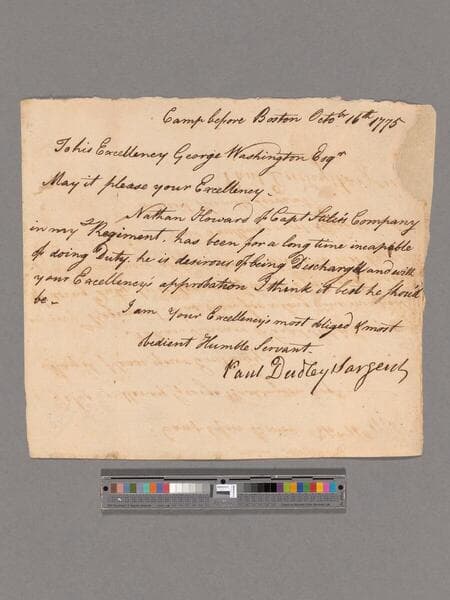 Camp before Boston Octobr 16th 1775
To his Excellency George Washington Esqr
May it please your Excellency -
Nathan Howard of Capt Company
in my Regiment, has been for a long time incapable
of doing Duty, he is desirous of being Discharg'd and with
your Excellency's approbation I think it best he should
be -
I am Your Excellency's most obliged & most
obedient Humble Servant.
Paul Dudley Sargent